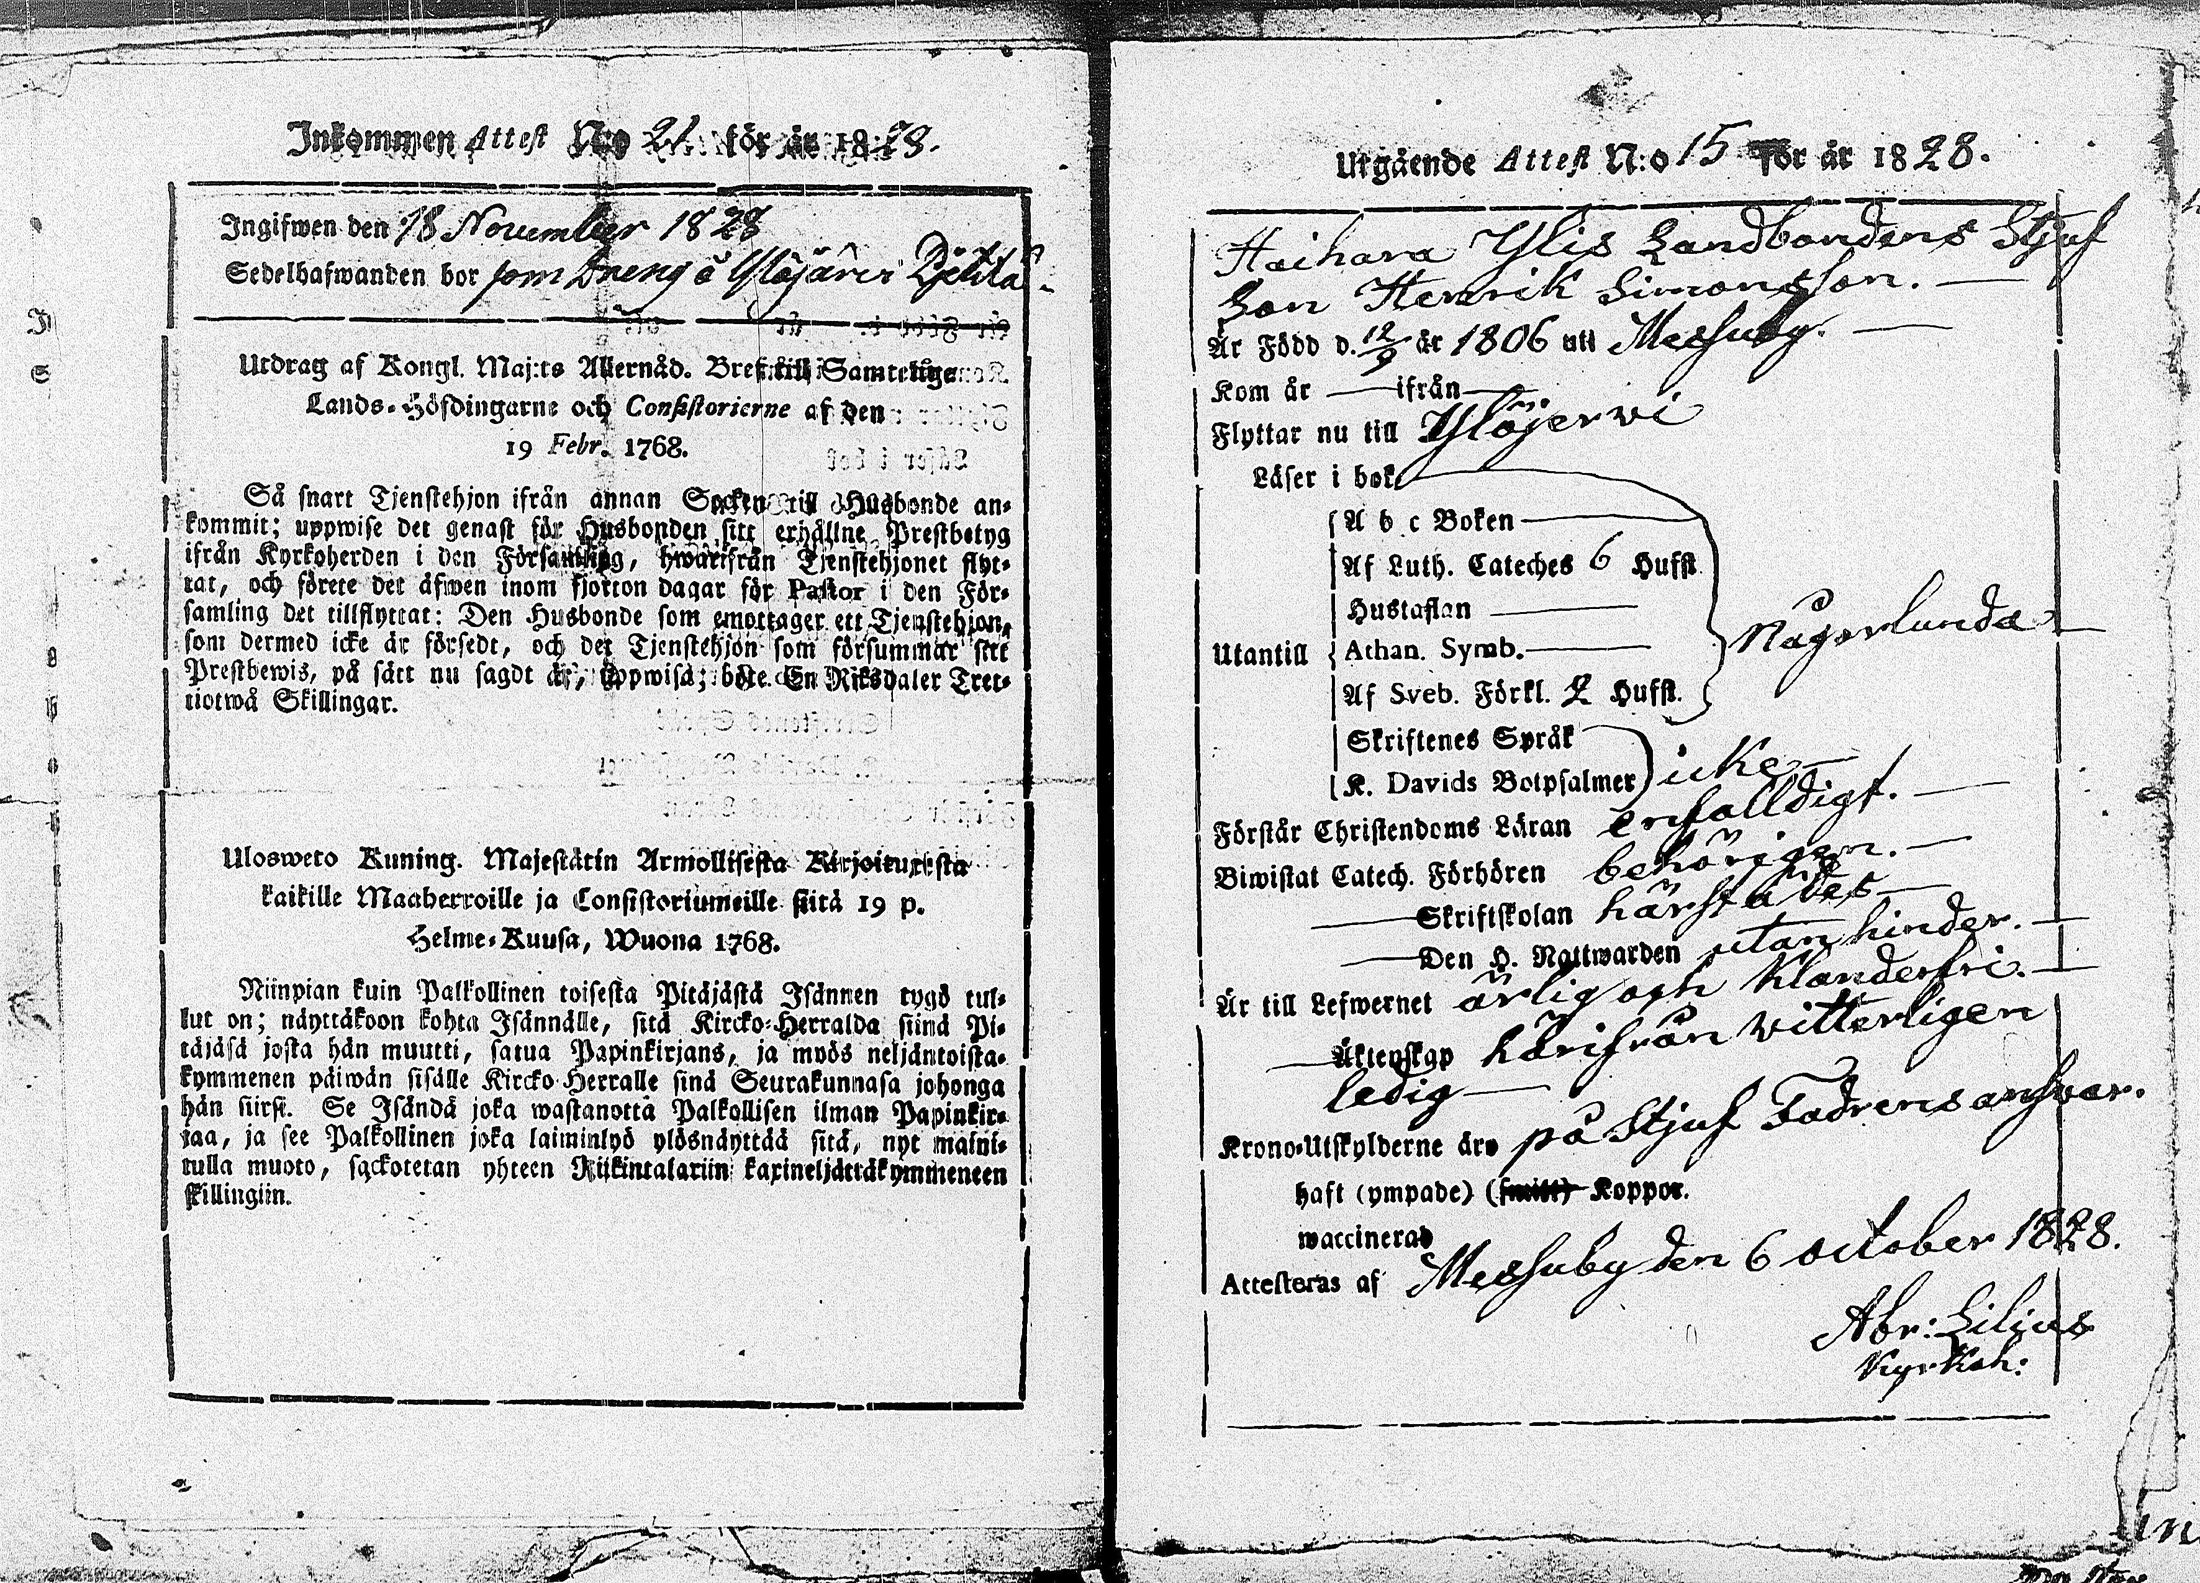 Inkommen Attest N:o 21 för år 1828.
Ingifwen den 18 November 1828
Sedelhafwanden bor som Dreng å Ylöjärvi
Utdrag af Kongl. Maj:ts Allernåd. Bref till Samtelige
Lands-Höfdingarne och Consistorierne af den
19 Febr. 1768.
Så snart Tjenstehjon ifrån annan Socken till Husbonde an-
kommit; uppwise det genast för Husbonden sitt erhållne Prestbetyg
ifrån Kyrkoherden i den Församling, hwarifrån Tjenstehjonet flyt-
tat, och förete det äfwen inom fjorton dagar för Pastor i den För-
samling det tillflyttat: Den Husbonde som emottager ett Tjenstehjon,
som dermed icke är försedt, och det Tjenstehjon som försummar sitt
Prestbewis, på sätt nu sagdt är, uppwisa; böte En Riksdaler Tret-
tiotwå Skillingar.
Ulosweto Kuning. Majestätin Armollisesta Kirjoituxesta
kaikille Maaherroille ja Consistoriumeille siitä 19 p.
Helme-Kuusa, Wuona 1768.
Niinpian kuin Palkollinen toisesta Pitäjästä Isännen tygö tul-
lut on; näyttäkoon kohta Isännälle, sitä Kircko-Herralda siinä Pi-
täjäsä josta hän muutti, saatua Papinkirjans, ja myös neljäntoista-
kymmenen päiwän sisälle Kircko-Herralle sinä Seurakunnasa johonga
hän siirsi. Se Isändä joka wastanotta Palkollisen ilman Papinkir-
jaa, ja see Palkollinen joka laiminlyö ylösnäyttää sitä, nyt maini-
tulla muoto, sackotetan yhteen Riikintalariin kaxineljättäkymmeneen
skillingiin.
Utgående Attest N:o 15 för år 1828.
Haihara Ylis Landbondens Stjuf
Son Henrik Simonsson.
Är Född d. 12/9 år 1806 uti Messuby.
Kom år — ifrån —
Flyttar nu till Ylöjerwi
Läser i bok
A b c Boken
Af Luth. Cateches 6 Hufst.
Hustaflan
Någorlunda
Utantill Athan. Symb.
Af Sveb. Förkl. 2 Hufst.
Skriftenes Språk
K. Davids Botpsalmer icke
Förstår Christendoms Läran enfalldigt.
Biwistat Catech. Förhören behörigen.
Skriftskolan härstädes
Den H. Nattwarden utan hinder.
Är till Lefwernet ärlig och klanderfri.
Äktenskap härifrån witterligen
ledig
Krono-Utskylderne äro på Stjuf Fadrens answar.
haft (ympade) (smitt) Koppor.
waccinerad
Attesteras af Messuby den 6 october 1828.
Abr: Lilius
Kyrkoh: